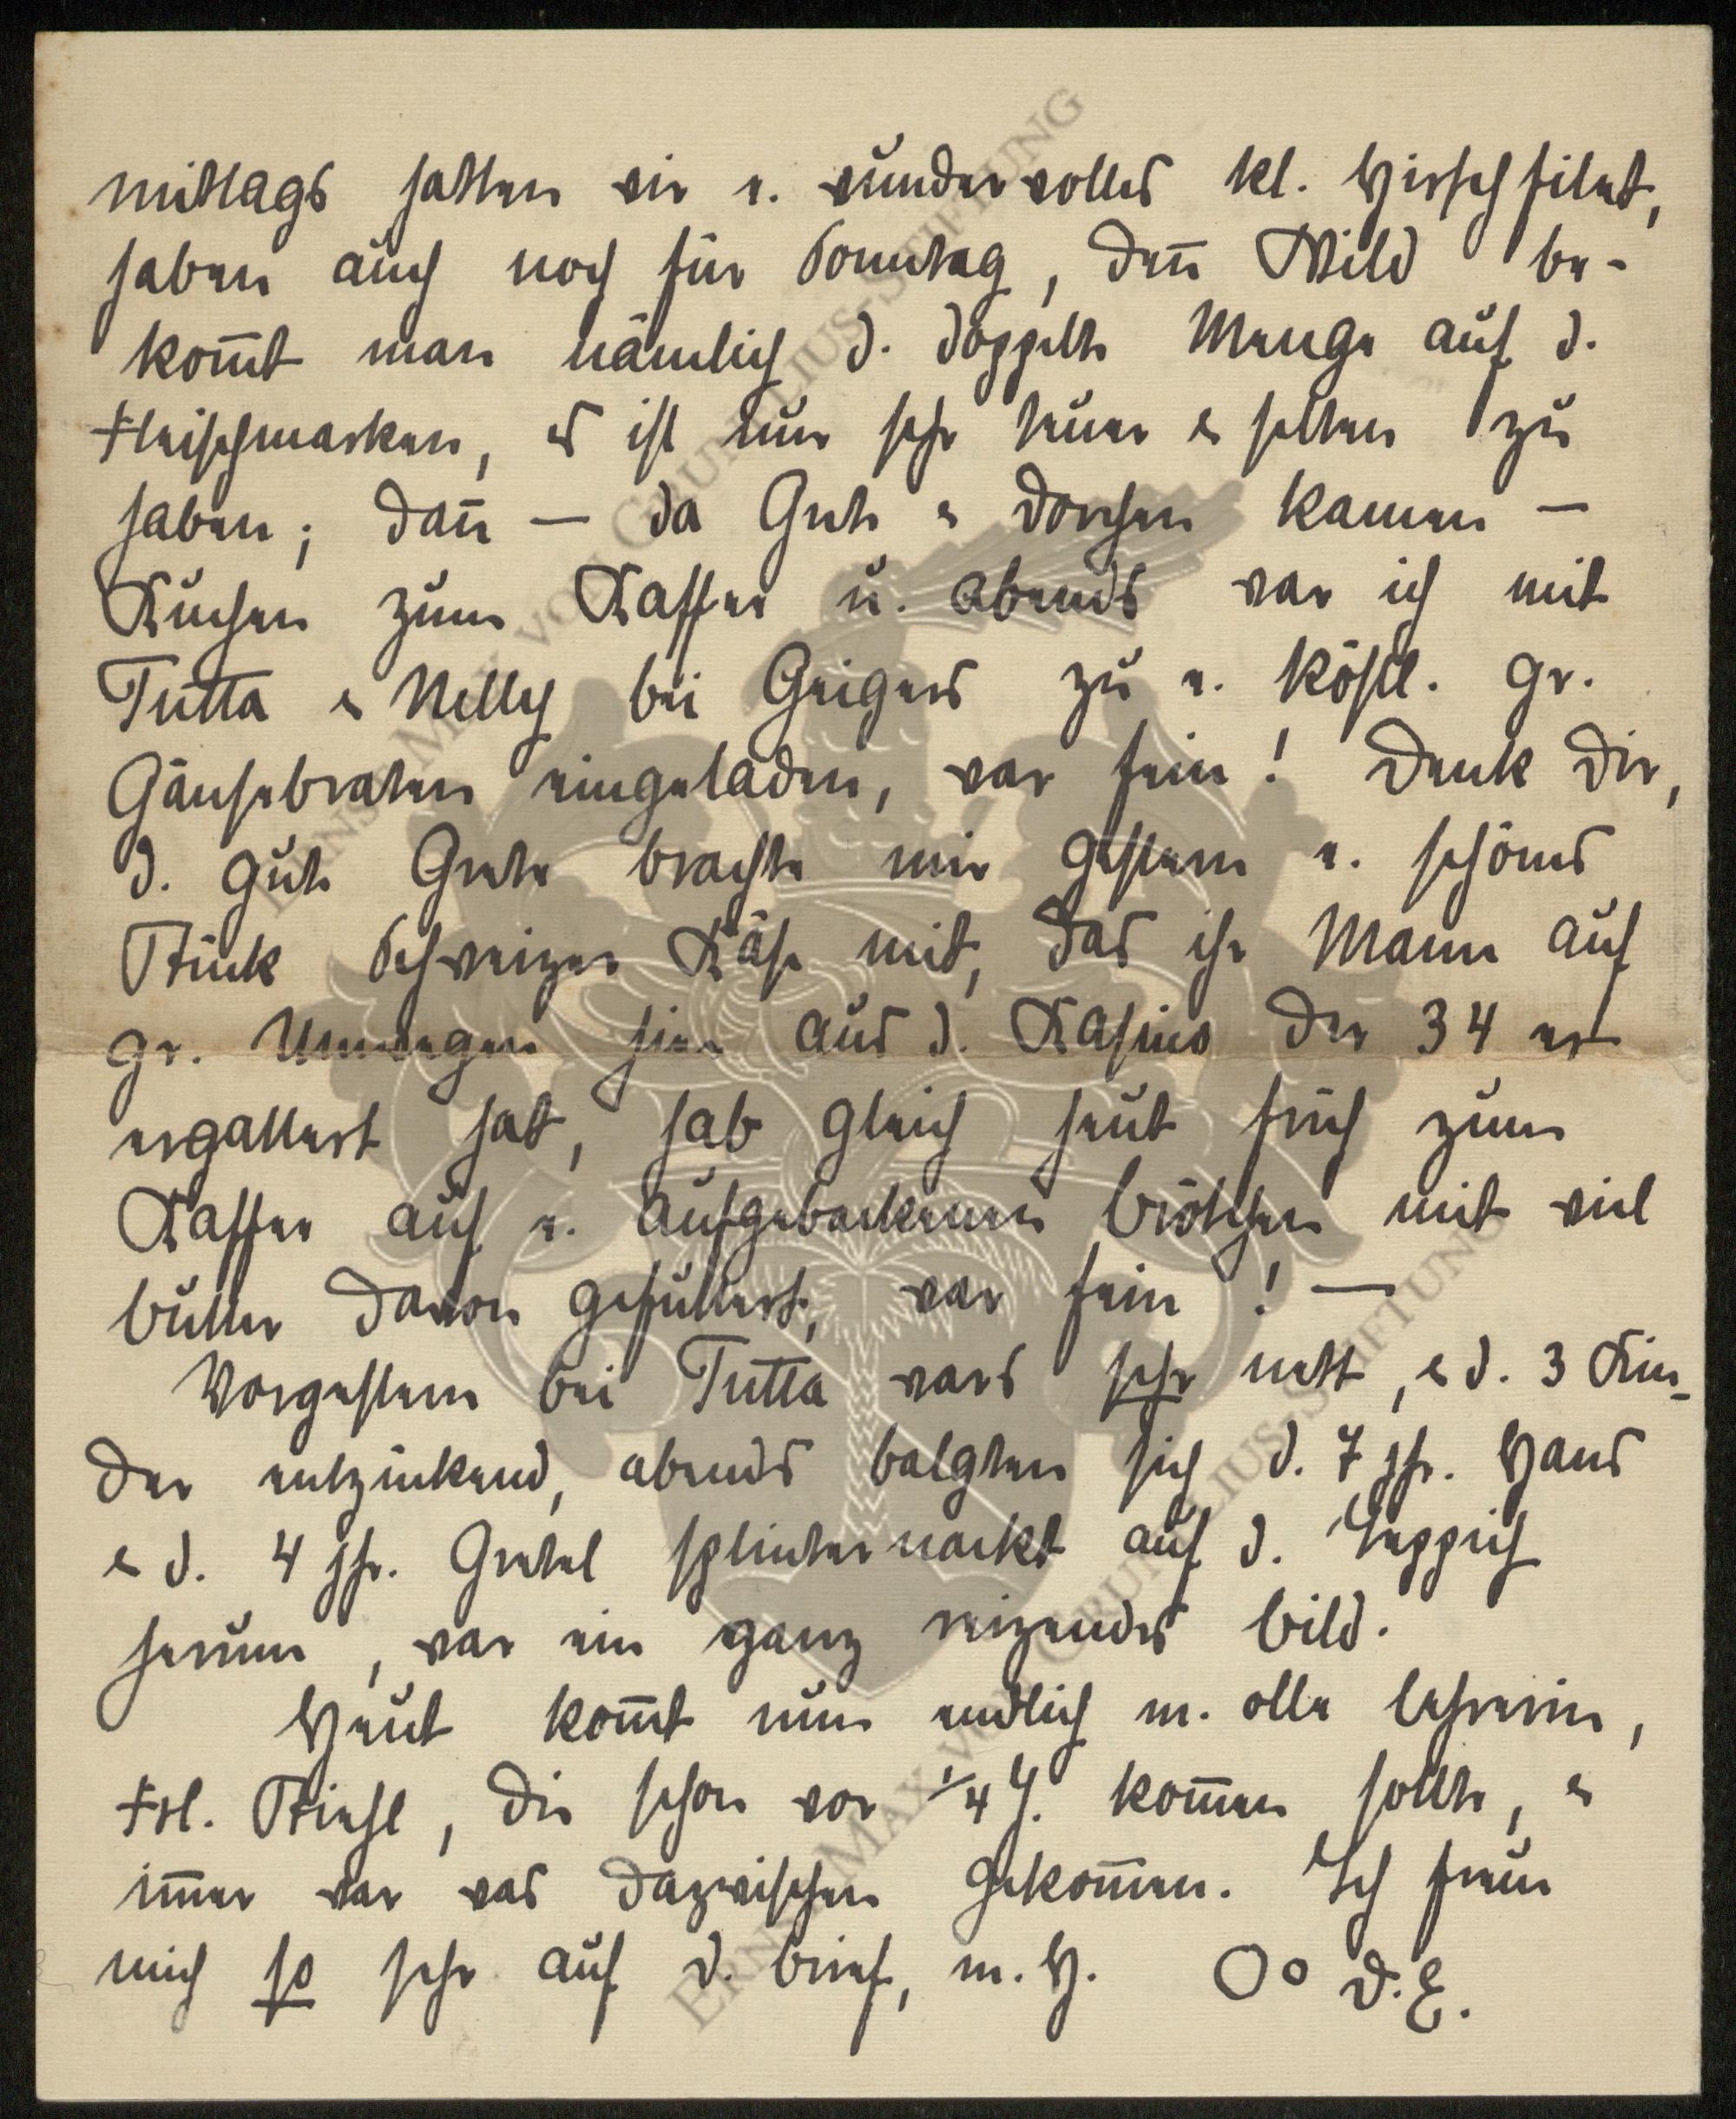 mittags hatten wir e. wundervolles kl. Hirschfilet,
haben auch noch für Sonntag, den̄ Wild be-
kom̄t man nämlich d. doppelte Menge auf d.
Fleischmarken, es ist nur sehr teuer & selten zu
haben; dan̄ — da Grete & Dorchen kamen —
Kuchen zum Kaffee u. abends war ich mit
Tutta & Nelly bei Geigers zu e. köstl. gr.
Gänsebraten eingeladen, war fein! Denk Dir,
d. gute Grete brachte mir gestern e. schönes
Stück Schweizer Käse mit, das ihr Mann auf
gr. Umwegen hier aus d. Kasino der 34 er
ergattert hat, hab gleich heut früh zum
Kaffee auf e. aufgebackenen Brötchen mit viel
Butter davon gefuttert, war fein! —
Vorgestern bei Tutta wars sehr nett, & d. 3 Kin-
der entzückend, abends balgten sich d. 7 jhr. Hans
& d. 4 jhr. Gretel splinternackt auf d. Teppich
herum, war ein ganz reizendes Bild.
Heut kom̄t nun endlich m. olle Lehrerin,
Frl. Stiehl, die schon vor 1/4 J. kom̄en sollte, &
im̄er war was dazwischen gekom̄en. Ich freue
mich so sehr auf d. Brief, m. H. Oo D. E.
ERNST MAX VON GRUNELIUS-STIFTUNG
ERNST MAX VON GRUNELIUS-STIFTUNG